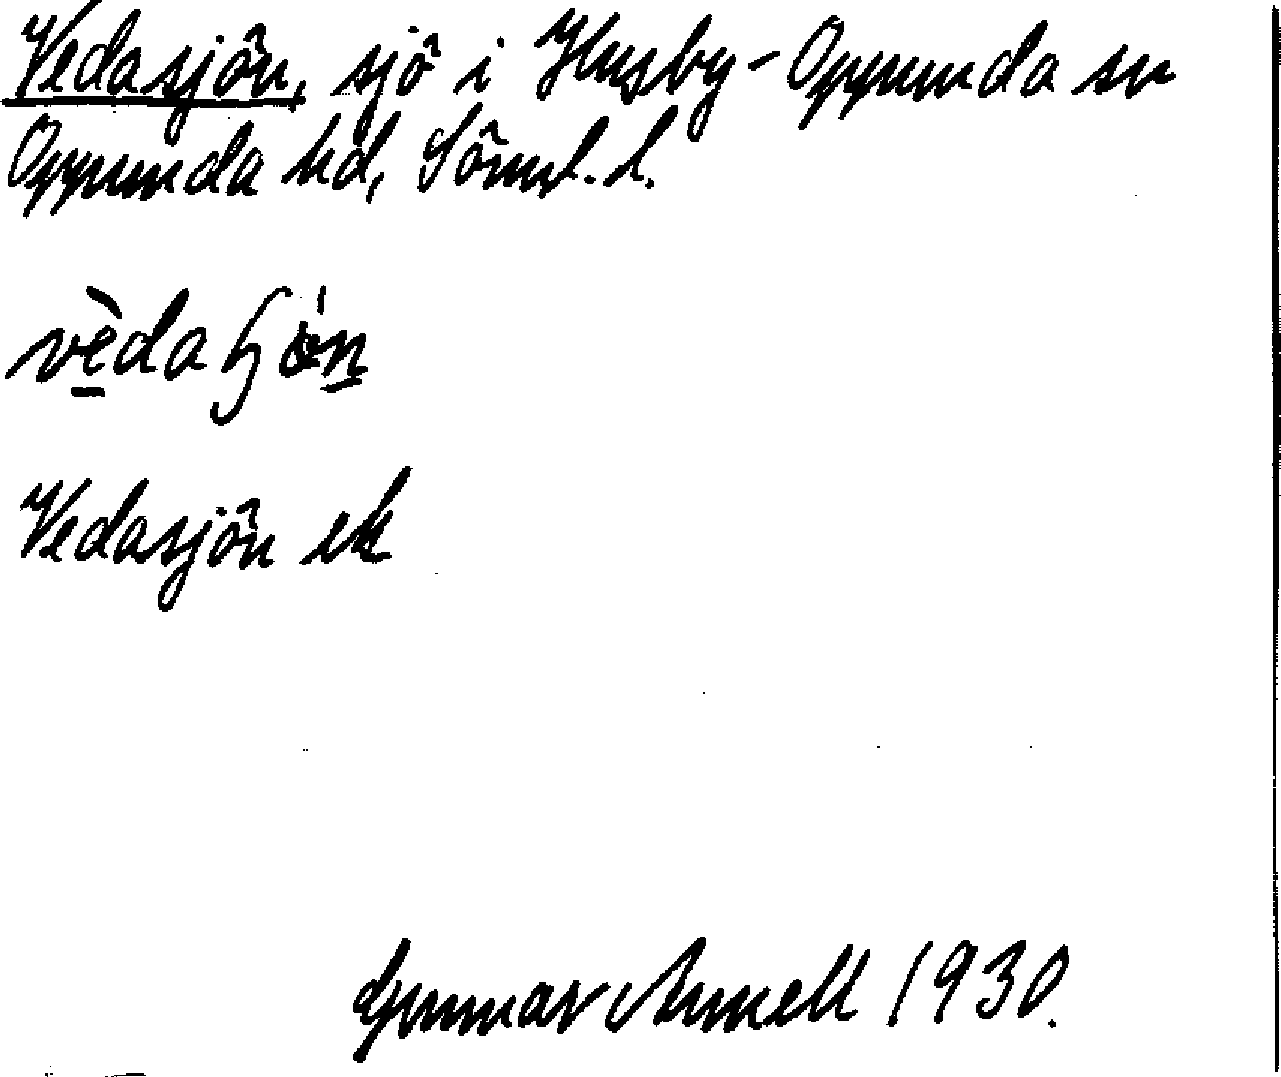 Vedasjön, sjö i Husby-Oppunda sn
Oppunda hd, Söml. l.
Vedasjön ek
Gunnar Arnell 1930.